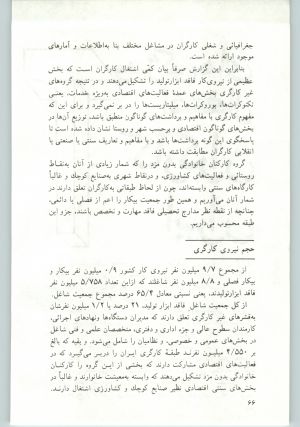 جغرافیائی و شغلی کارگران در مشاغل مختلف بنا به‌اطلاعات و آمارهای
موجود ارائه شده است.
بنابراین این گزارش صرفاً بیان کمّی اشتغال کارگران است که بخش
عظیمی از نیروی‌کار فاقد ابزارتولید را تشکیل‌می‌دهند و در نتیجه گروه‌های
غیر کارگری بخش‌های عمدهٔ فعالیت‌های اقتصادی به‌ویژه خدمات، یعنی
تکنوکرات‌ها، بوروکرات‌ها، میلیتاریست‌ها را در بر نمی‌گیرد و برای این که
مفهوم کارگری با مفاهیم و برداشت‌های گوناگون منطبق باشد، توزیع آن‌ها در
بخش‌های گوناگون اقتصادی و برحسب شهر و روستا نشان داده شده است تا
پاسخگوی این گونه برداشت‌ها باشد و با مفاهیم و تعاریف سنتی یا صنعتی یا
انقلابی کارگران مطابقت داشته باشد.
گروه کارکنان خانوادگی بدون مزد را که شمار زیادی از آنان به‌نقاط
روستائی و فعالیت‌های کشاورزی، و درنقاط شهری به‌صنایع کوچک و غالباً
کارگاه‌های سنتی وابسته‌اند، چون از لحاظ طبقاتی به‌کارگران تعلق دارند در
شمار آنان می‌آوریم و همین طور جمعیت بیکار را اعم از فصلی یا دائمی،
چنانچه از نقطه نظر مدارج تحصیلی فاقد مهارت و تخصص باشند، جزو این
طبقه محسوب می‌داریم.
حجم نیروی کارگری
از مجموع ۹/۷ میلیون نفر نیروی کار کشور ۰/۹ میلیون نفر بیکار و
بیکار فصلی و ۸/۸ میلیون نفر شاغلند که ازاین تعداد ۵/۷۵۸ میلیون نفر
فاقد ابزارتولیدند، یعنی نسبتی معادل ۶۵/۴ درصد مجموع جمعیت شاغل.
از کل جمعیت شاغل فاقد ابزار تولید، ۲۱ درصد یا ۱/۲ میلیون نفرشان
به‌قشرهای غیر کارگری تعلق دارند که مدیران دستگاه‌ها ونهادهای اجرائی،
کارمندان سطوح عالی و جزء اداری و دفتری، متخصصان علمی و فنی شاغل
در بخش‌های عمومی و خصوصی، و نظامیان را شامل می‌شود. و بقیه که بالغ
بر ۴/۵۵۰ میلیون نفرند طبقهٔ کارگری ایران را دربر می‌گیرد که در
فعالیت‌های اقتصادی مشارکت دارند که بخشی از این گروه را کارکنان
خانوادگی بدون مزد تشکیل می‌دهند که وابسته به‌معیشت خانوارند و غالباً در
بخش‌های سنتی اقتصادی نظیر صنایع کوچک و کشاورزی اشتغال دارند.
۶۶